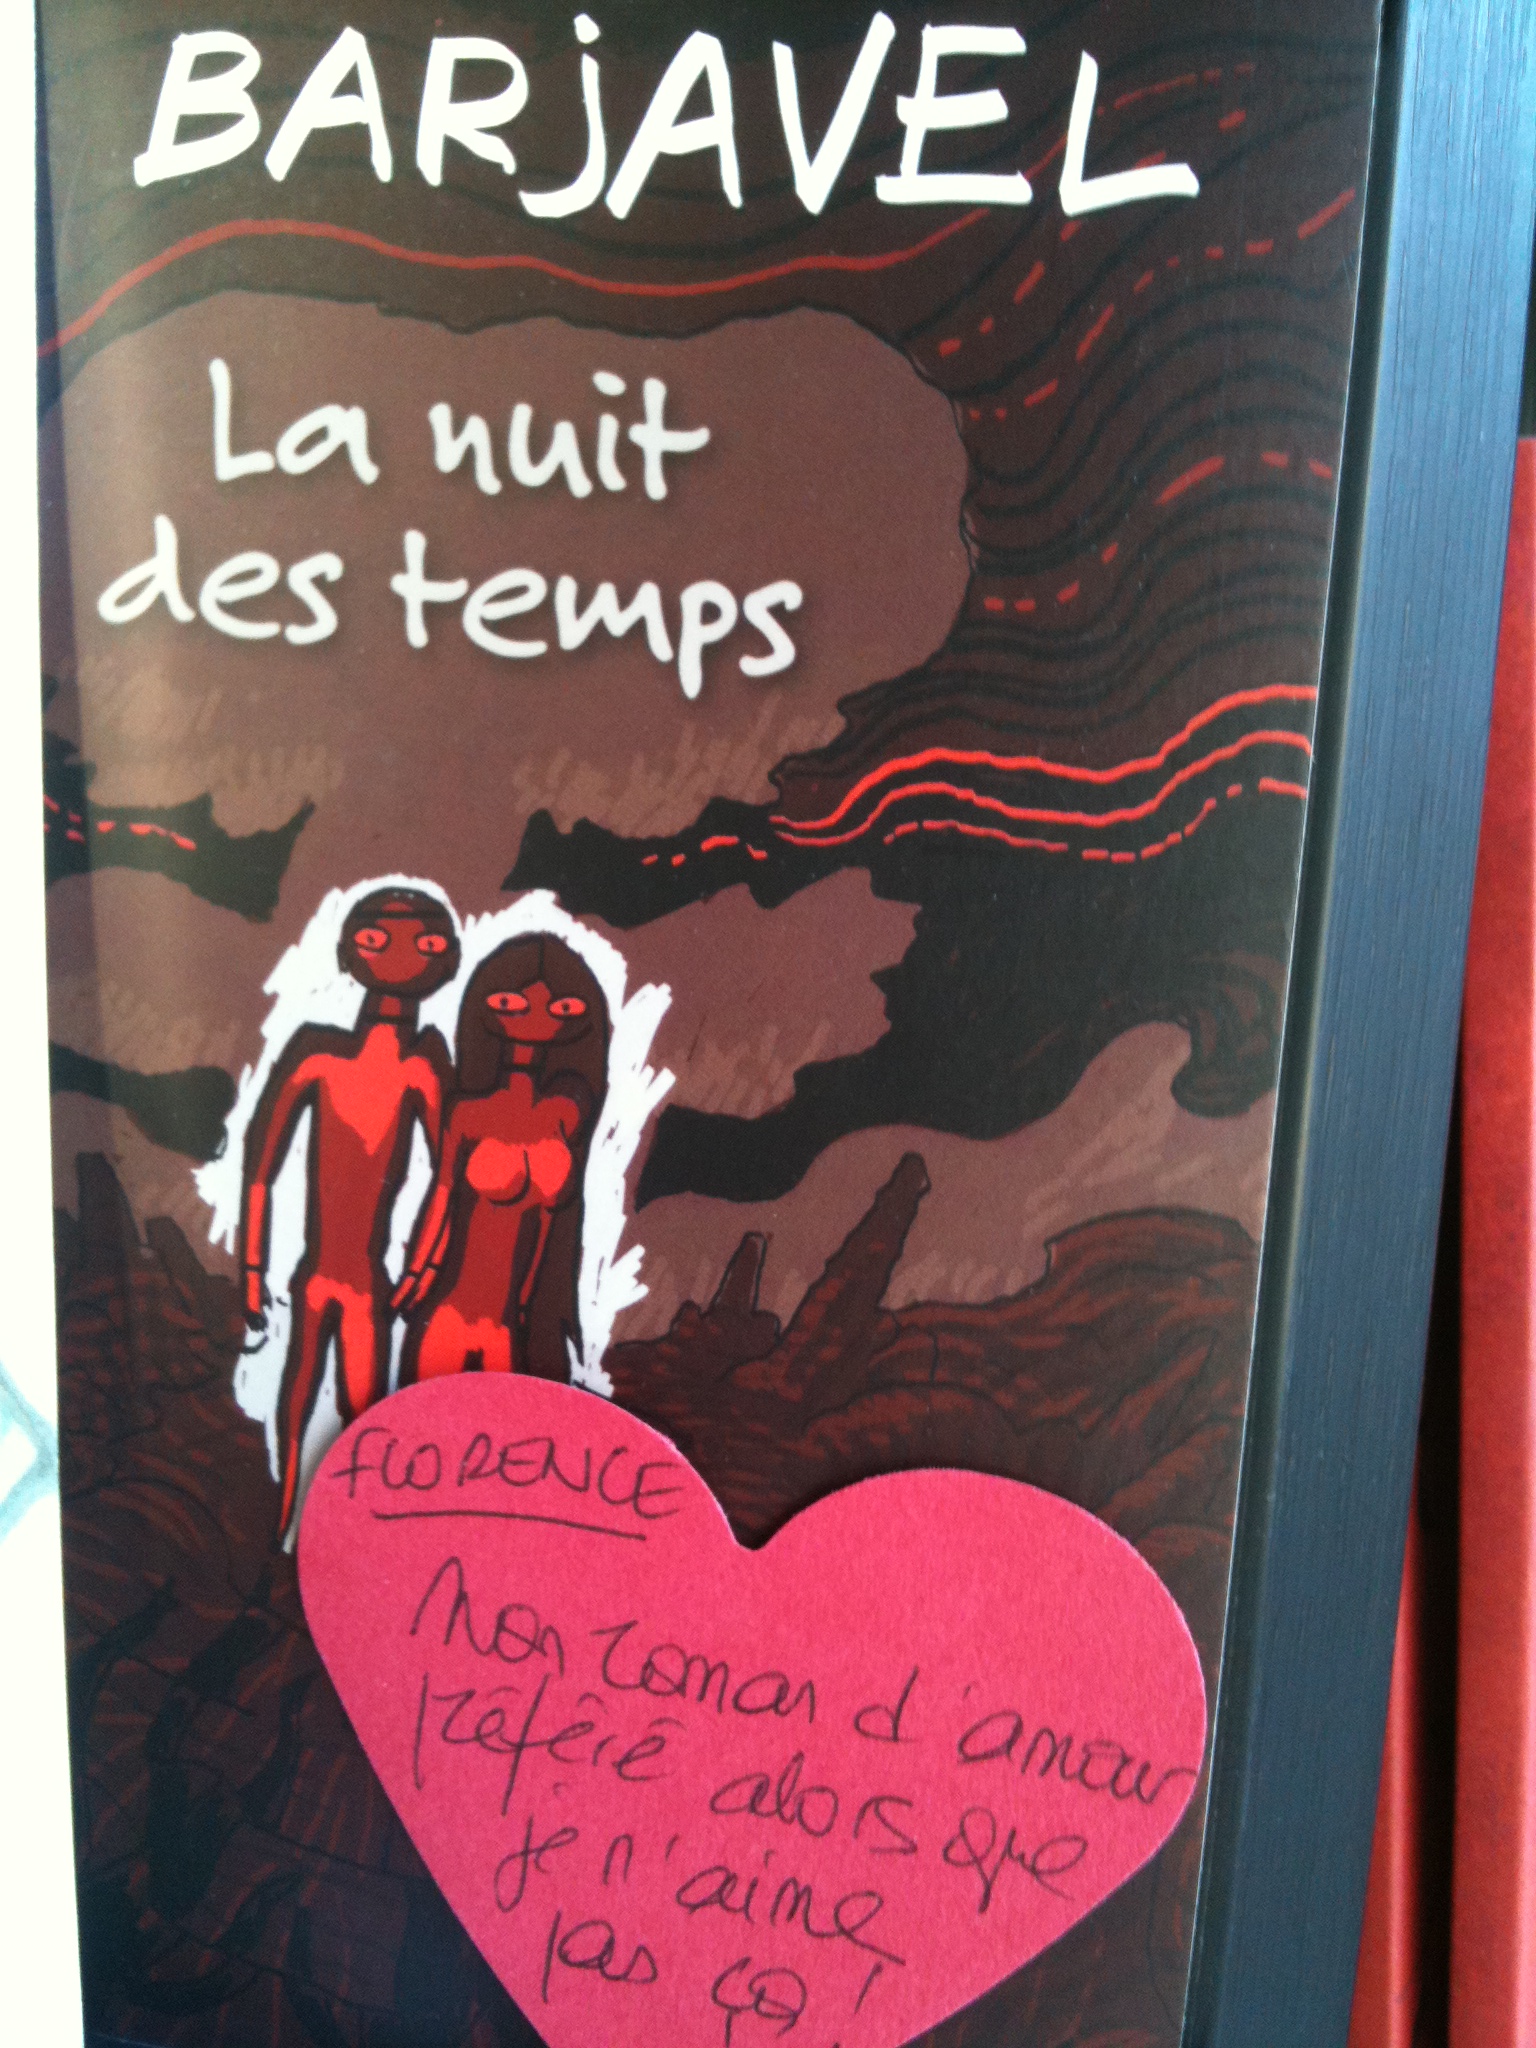 BARjAVEL
La nuit
des temps
FLORENCE
Mon roman d'amour
préféré alors que
je n'aime
pas ça !